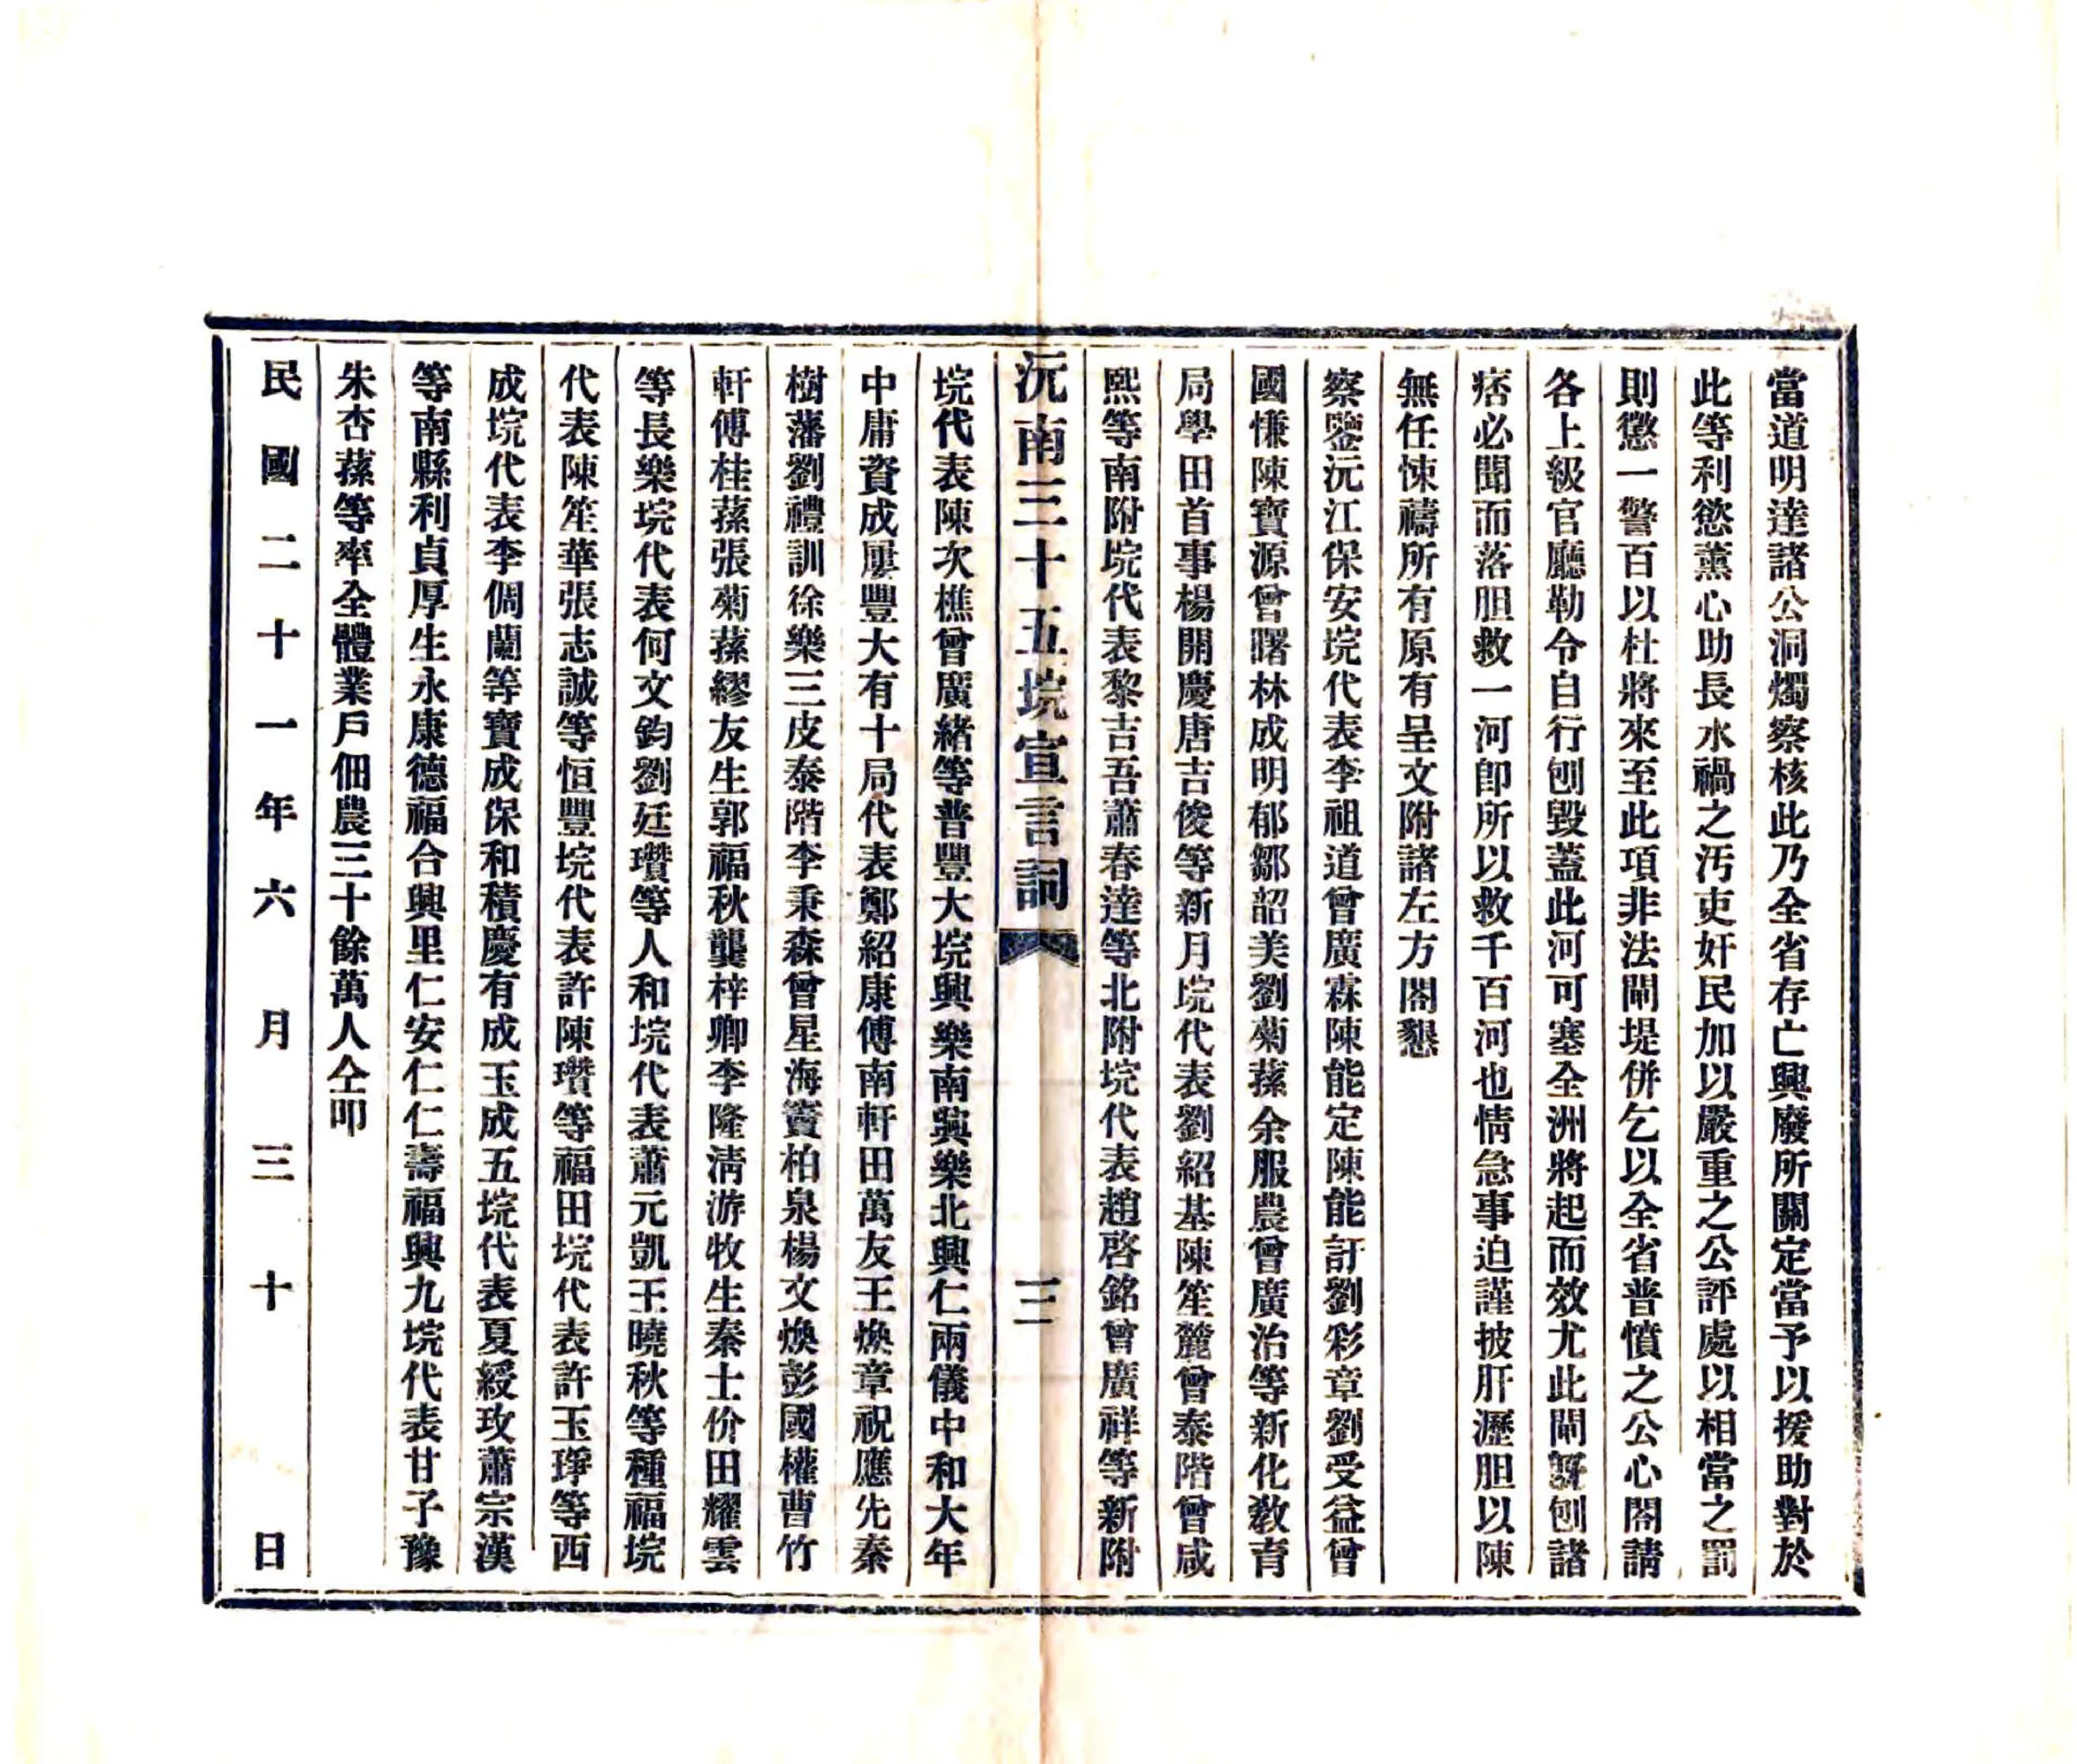 當道明達諸公洞燭察核此乃全省存亡興廢所關定當予以援助對於
此等利慾薰心助長水禍之汚吏奸民加以嚴重之公評處以相當之罰
則懲一警百以杜將來至此項非法閘堤併乞以全省普憤之公心閤請
各上級官廳勒令自行刨毀蓋此河可塞全洲將起而效尤此閘旣刨諸
痞必聞而落胆救一河卽所以救千百河也情急事迫謹披肝瀝胆以陳
無任悚禱所有原有呈文附諸左方閤懇
察鑒沅江保安垸代表李祖道曾廣霖陳能定陳能訏劉彩章劉受益曾
國慊陳寶源曾曙林成明郁鄒韶美劉菊蓀余服農曾廣治等新化敎育
局學田首事楊開慶唐吉俊等新月垸代表劉紹基陳笙麓曾泰階曾咸
熙等南附垸代表黎吉吾蕭春達等北附垸代表趙啓銘曾廣祥等新附
沅南三十五垸宣言詞 三
垸代表陳次樵曾廣緒等普豐大垸興樂南興樂北興仁兩儀中和大年
中庸資成屢豐大有十局代表鄭紹康傅南軒田萬友王煥章祝應先秦
樹藩劉禮訓徐樂三皮泰階李秉森曾星海竇柏泉楊文煥彭國權曹竹
軒傅桂蓀張菊蓀繆友生郭福秋龔梓卿李隆淸游牧生秦士价田耀雲
等長樂垸代表何文鈞劉廷瓚等人和垸代表蕭元凱王曉秋等種福垸
代表陳笙華張志誠等恒豐垸代表許陳瓚等福田垸代表許玉琤等西
成垸代表李倜蘭等寶成保和積慶有成玉成五垸代表夏綬玫蕭宗漢
等南縣利貞厚生永康德福合興里仁安仁仁壽福興九垸代表甘子豫
朱杏蓀等率全體業戶佃農三十餘萬人仝叩
民國二十一年六月三十日